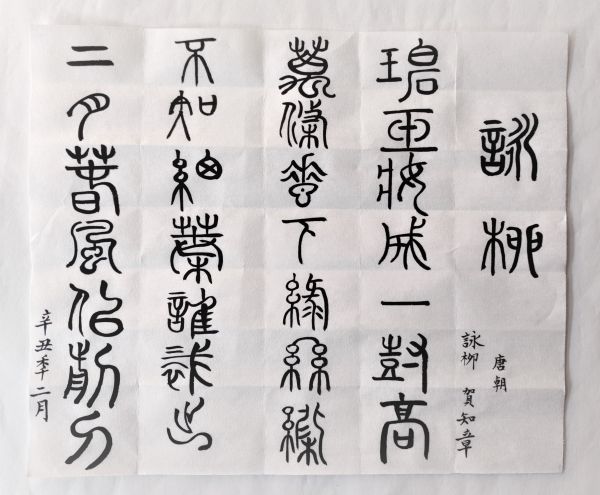 詠柳
唐朝
詠柳 賀知章
碧玉妝成一樹高
萬條垂下綠絲絛
不知細葉誰裁出
二月春風似剪刀
辛丑秊二月